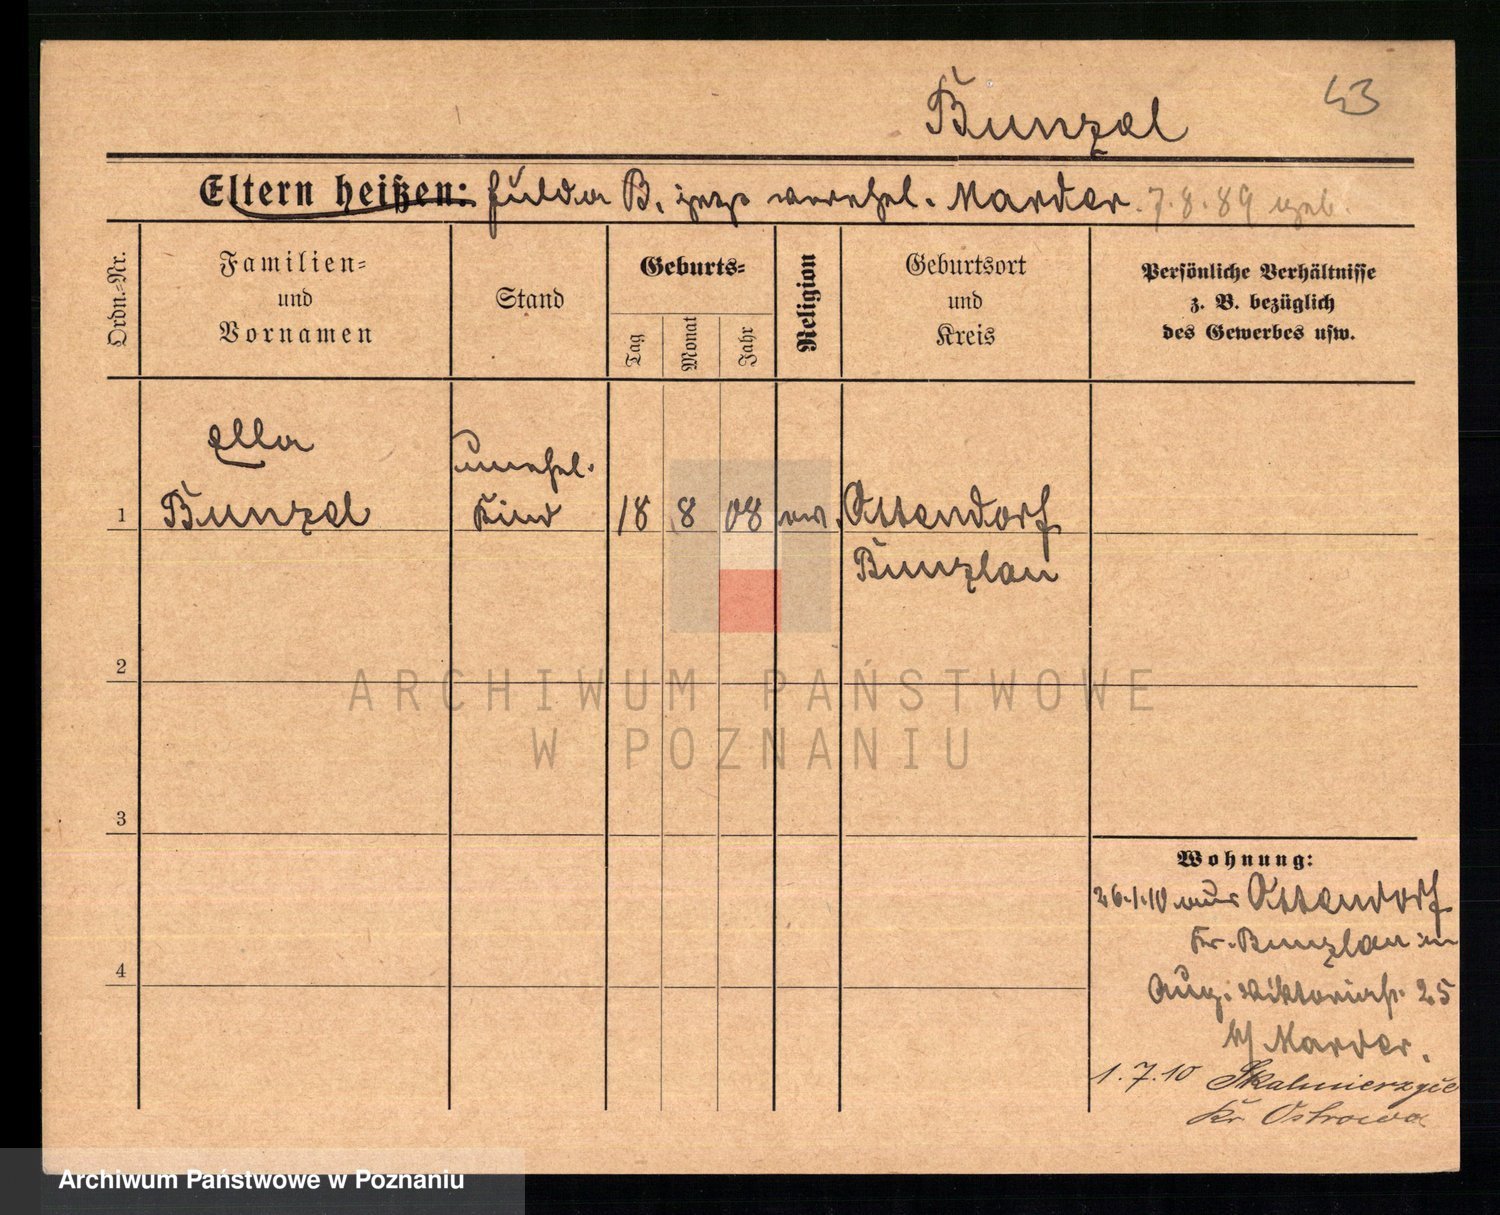 Bunzel
43
Eltern heißen: Hulda B. jetzt verehel. Marder. 7.8.89 geb.
Ordn.-Nr.
Familien- und Vornamen
Stand
Geburts-
Tag
Monat
Jahr
Religion
Geburtsort und Kreis
Persönliche Verhältnisse
z. B. bezüglich
des Gewerbes usw.
Ella
unehel.
1 Bunzel Kind 18 8 08 ev. Ottendorf
Bunzlau
2
ARCHIWUM PAŃSTWOWE
W POZNANIU
3
Wohnung:
26.1.10 aus Ottendorf
Kr. Bunzlau in
4
Aug. Viktoriastr. 25
b/ Marder.
1.7.10 Skalmierzyce
Kr. Ostrowo
Archiwum Państwowe w Poznaniu